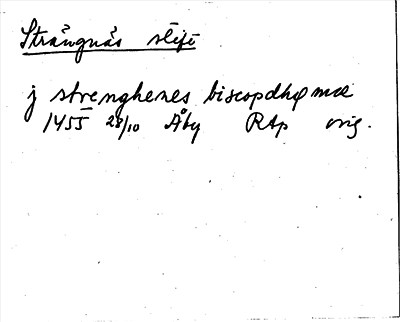 Strängnäs stift
j strenghenes biscopdhømæ
1455 28/10 Åby RAp orig.